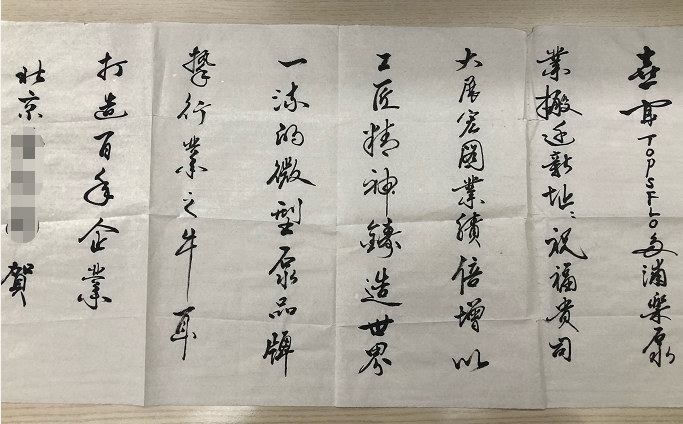 喜闻TOPSFLO多浦乐泵
業搬迁新址：祝福贵司
大展宏图業绩倍增以
工匠精神鑄造世界
一流的微型泵品牌
擎行業之牛耳
打造百年企業
北京
賀